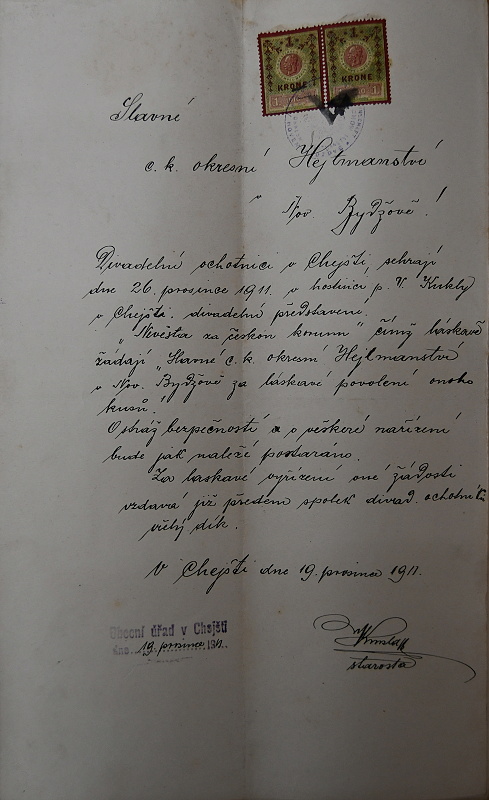 1 1
KRONE KRONE
1 1
Slavné
c. k. okresní Hejtmanství
v Nov. Bydžově!
Divadelní ochotníci v Chejšti, sehrají
dne 26. prosince 1911. v hostinci p. V. Kukly
v Chejšti. divadelní představení.
„Nevěsta za českou korunu" čímž láskavě
žádají „Slavné c. k. okresní Hejtmanství
v Nov. Bydžově za láskavé povolení onoho
kusů!
O stráž bezpečností a o veškeré nařízení
bude jak náleží postaráno.
Za laskavé vyřízení oné žádosti
vzdává již předem spolek divad. ochotníků
vřelý dík.
V Chejšti dne 19. prosince 1911.
Obecní úřad v Chejšti
dne 19. prosince 1911.
starosta